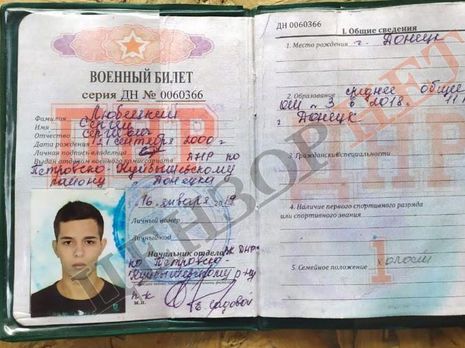 ВОЕННЫЙ БИЛЕТ
серия ДН № 0060366
Фамилия
Имя Сергей
Отчество Сергеевич
Дата рождения 21 сентября 2000 г.
Личная подпись владельца
Выдан отделом военного комиссариата ДНР по
Петровско-Куйбышевскому
району г. Донецка
16 января 2019
Личный номер
Личный код
Начальник отдела ВК ДНР
по Петровско-
Куйбышевскому р-ну
п-к
ДН 0060366
I. Общие сведения
1. Место рождения г. Донецк
2. Образование среднее общее
ОШ - 3 2018г. 11
г. Донецк
3. Гражданская специальность
4. Наличие первого спортивного разряда
или спортивного звания.
5. Семейное положение холост
ЦЕНЗОР.НЕТ